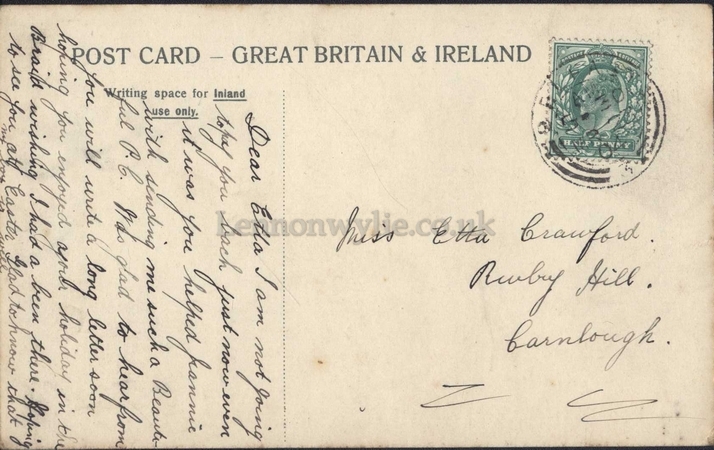 POST CARD – GREAT BRITAIN & IRELAND
Writing space for Inland
use only.
HALF PENNY
Miss Etta Crawford.
Hill.
Carnlough.
Dear Etta I am not going
to pay you back just now even
it was you helped Jeannie
with sending me such a Beauti-
ful P.C. Was glad to hear from
you will write a long letter soon
hoping you enjoyed your holiday in the
Braid wishing I had a been there. Hoping
to see you at Easter Glad to know that
kennonwylie.co.uk